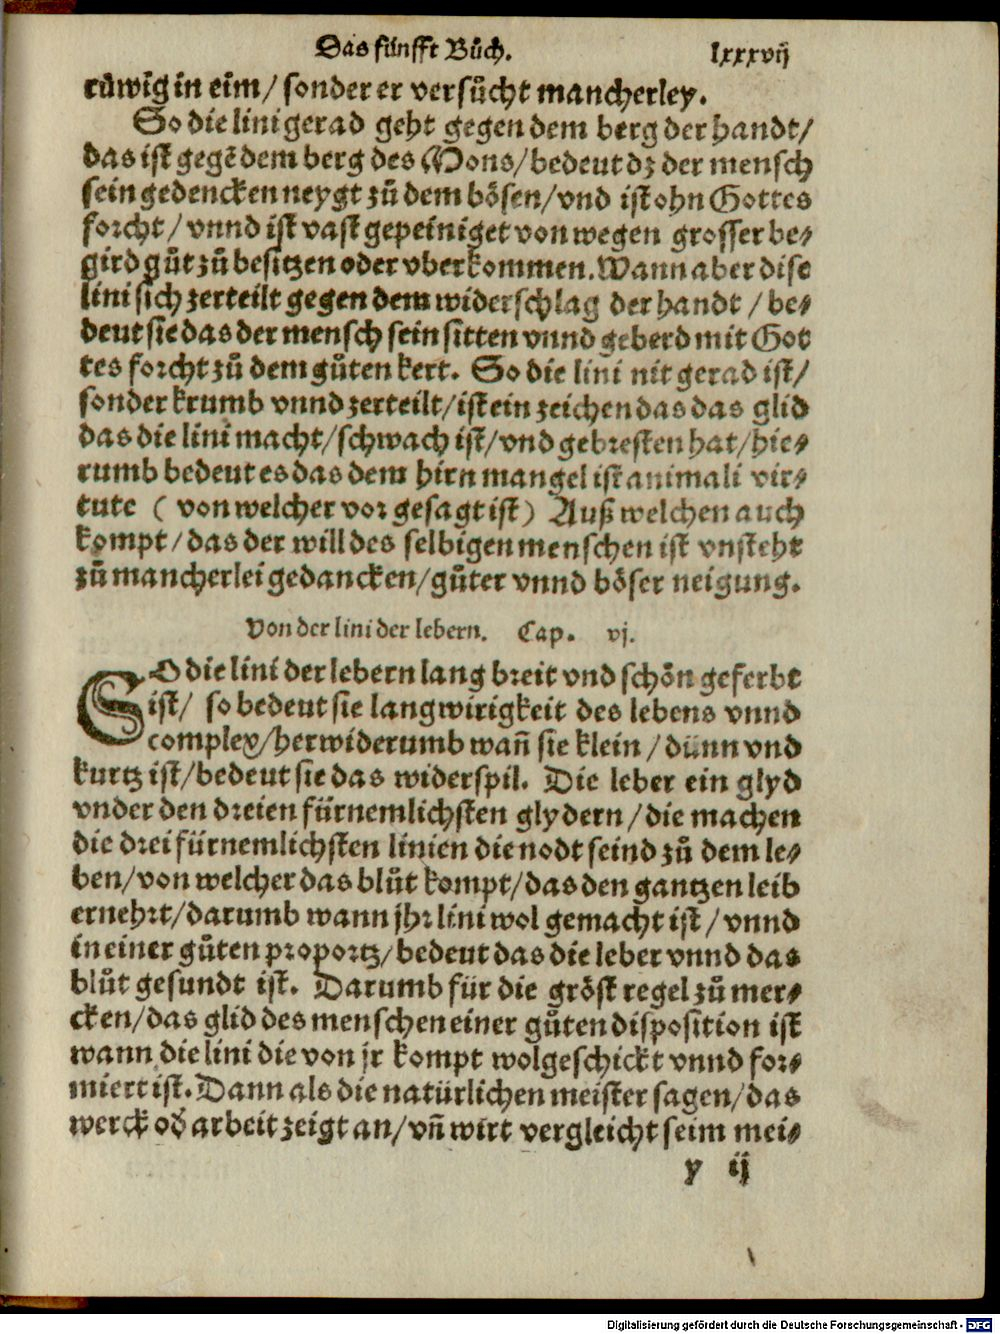 Das fünfft Bůch. lxxxvij
růwig in eim/ sonder er versůcht mancherley.
So die lini gerad geht gegen dem berg der handt/
das ist gegē dem berg des Mons/ bedeut dz der mensch
sein gedencken neygt zů dem bösen/ vnd ist ohn Gottes
forcht/ vnnd ist vast gepeiniget von wegen grosser be⸗
gird gůt zů besitzen oder vberkommen. Wann aber dise
lini sich zerteilt gegen dem widerschlag der handt / be⸗
deut sie das der mensch sein sitten vnnd geberd mit Got
tes forcht zů dem gůten kert. So die lini nit gerad ist/
sonder krumb vnnd zerteilt/ ist ein zeichen das das glid
das die lini macht/ schwach ist/ vnd gebresten hat/ hie⸗
rumb bedeut es das dem hirn mangel ist animali vir⸗
tute ( von welcher vor gesagt ist) Auß welchen auch
kompt/ das der will des selbigen menschen ist vnsteht
zů mancherlei gedancken/ gůter vnnd böser neigung.
Von der lini der lebern. Cap. vj.
SO die lini der lebern lang breit vnd schön geferbt
ist/ so bedeut sie langwirigkeit des lebens vnnd
complex/ herwiderumb wañ sie klein / dünn vnd
kurtz ist/ bedeut sie das widerspil. Die leber ein glyd
vnder den dreien fürnemlichsten glydern/ die machen
die drei fürnemlichsten linien die nodt seind zů dem le⸗
ben/ von welcher das blůt kompt/ das den gantzen leib
ernehrt/ darumb wann jhr lini wol gemacht ist/ vnnd
in einer gůten proportz/ bedeut das die leber vnnd das
blůt gesundt ist. Darumb für die gröst regel zů mer⸗
cken/ das glid des menschen einer gůten disposition ist
wann die lini die von jr kompt wolgeschickt vnnd for⸗
miert ist. Dann als die natürlichen meister sagen/ das
werck od̄ arbeit zeigt an/ vñ wirt vergleicht seim mei⸗
y ij
Digitalisierung gefördert durch die Deutsche Forschungsgemeinschaft - DFG